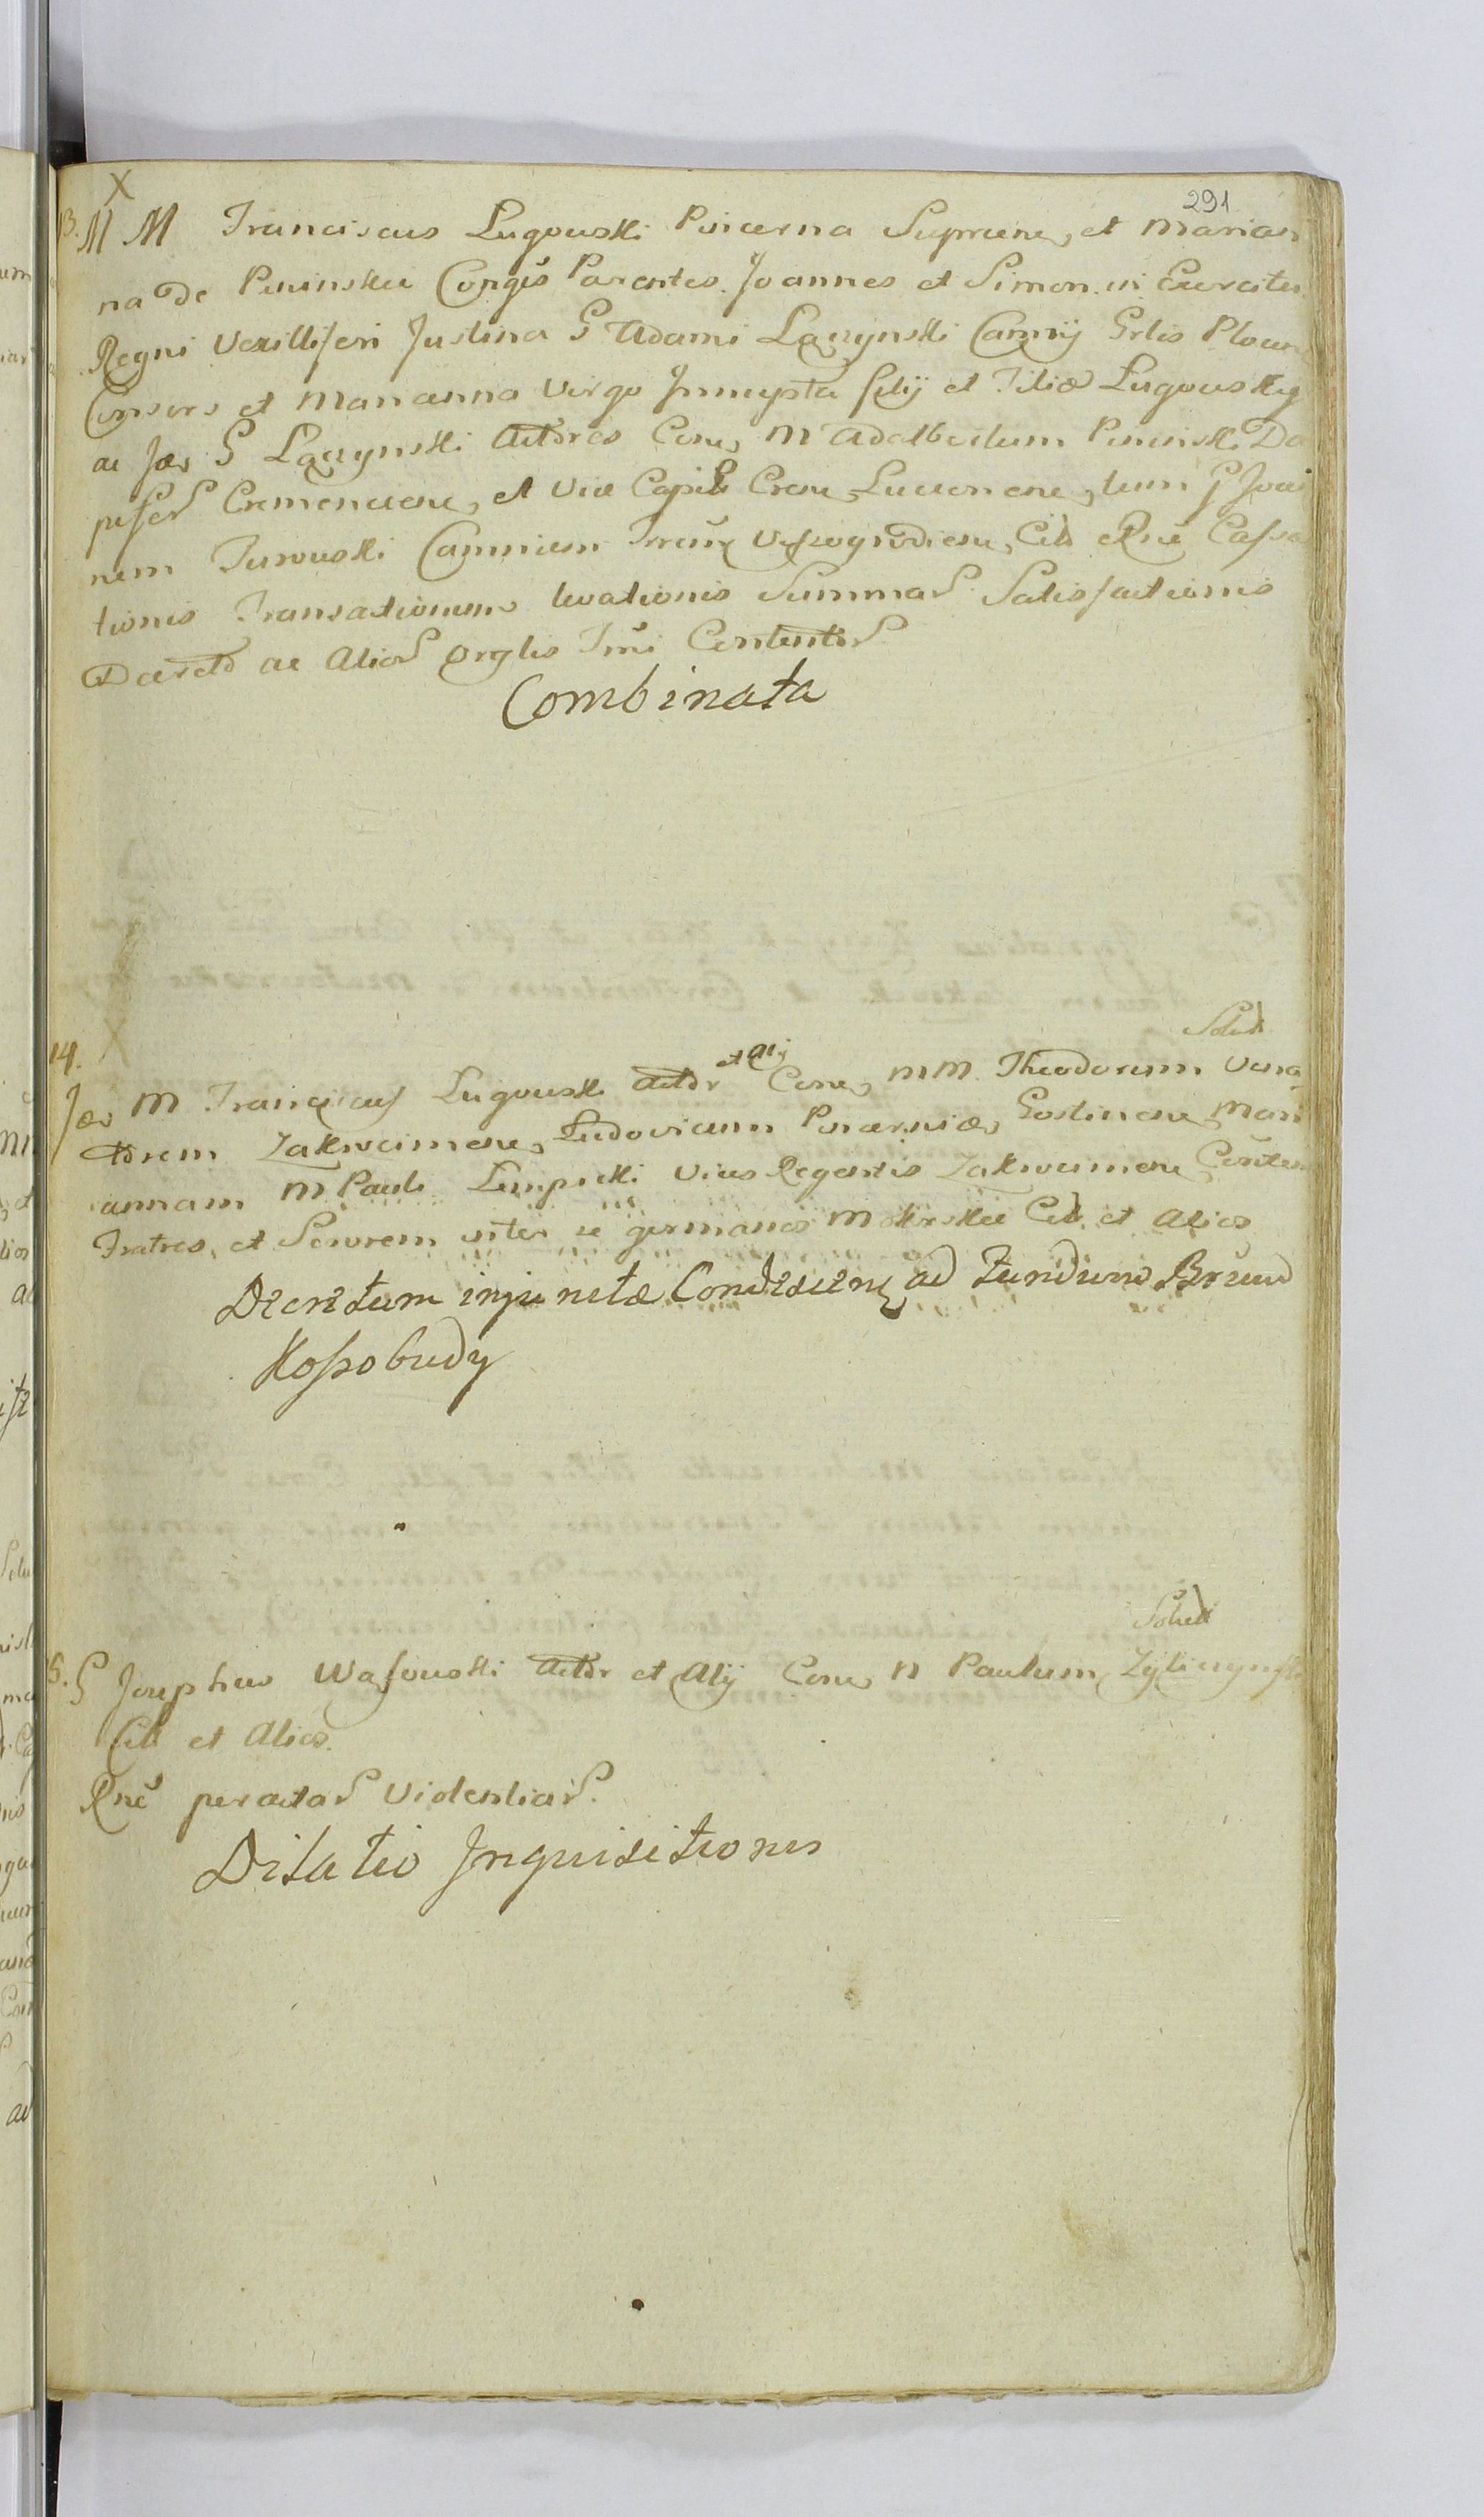 291
X
13. M M Franciscus Lugowski Pincerna Suprscens, et Marian
na de Pininskie Conges Parentes. Joannes et Simon in Exercitu
Regni Vexilliferi Justina G Adami Laczynski Camrij Grlis Plocens
Consors et Marianna Virgo Innupta filij et Filiæ Lugowskie
ac Jær G Laczynski Actores Cone M Adalbertum Pininski Da
pifer Cremenecens, et Vice Capit Crens Luceoriens, tum G Joan
nem Turowski Camrium Wyszogrodiens, Citt Rne Cassa
tionis Transactionum levationis Summar Satisfactionis
Decreto ac Alior Orglis Trmi Contentor
Combinata
Solut
14.
X
Jær M Franciscus Lugowski Actor et Alij Cone, M M. Theodorum Vena
torem Zakroczimens, Ludovicum Pincernides Gostinens, Mari
annam M Pauli Lempicki Vices Regentis Zakroczimens Conten
Fratres, et Sororem inter se germanos Mokrskie Citt. et Alios
Decretum injunctæ Condescens ad Fundum Bonor
Kossobudy
Solut
15. G Josephus Wasowski Actor et Alij Cone N Paulum Zyliczynski
Citt et Alios.
Rne peractar Violentiar.
Dilatio Inquisitionis